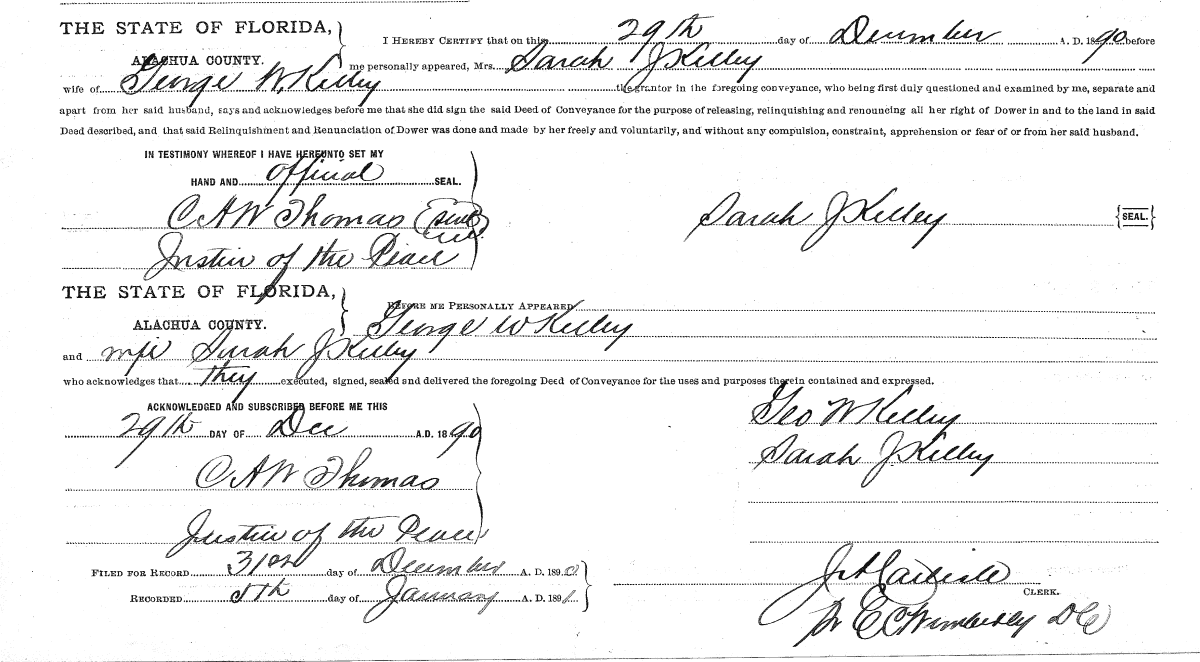 THE STATE OF FLORIDA,
I HEREBY CERTIFY that on this 29th day of December A. D. 1890 before
ALACHUA COUNTY.
me personally appeared, Mrs. Sarah J Kelley
wife of George W. Kelley the grantor in the foregoing conveyance, who being first duly questioned and examined by me, separate and
apart from her said husband, says and acknowledges before me that she did sign the said Deed of Conveyance for the purpose of releasing, relinquishing and renouncing all her right of Dower in and to the land in said
Deed described, and that said Relinquishment and Renunciation of Dower was done and made by her freely and voluntarily, and without any compulsion, constraint, apprehension or fear of or from her said husband.
IN TESTIMONY WHEREOF I HAVE HEREUNTO SET MY
HAND AND official SEAL.
C A W Thomas (seal)
Sarah J Kelley {SEAL.}
Justice of the Peace
THE STATE OF FLORIDA,
BEFORE ME PERSONALLY APPEARED
ALACHUA COUNTY.
George W Kelley
and wife Sarah J Kelley
who acknowledges that they executed, signed, sealed and delivered the foregoing Deed of Conveyance for the uses and purposes therein contained and expressed.
ACKNOWLEDGED AND SUBSCRIBED BEFORE ME THIS
29th DAY OF Dec A.D. 1890
Geo W Kelley
Sarah J Kelley
C A W Thomas
Justice of the Peace
FILED FOR RECORD 31st day of December A. D. 1890
RECORDED 5th day of January A. D. 1891.
J A Carlisle
CLERK.
Pr E C Wimberly D C